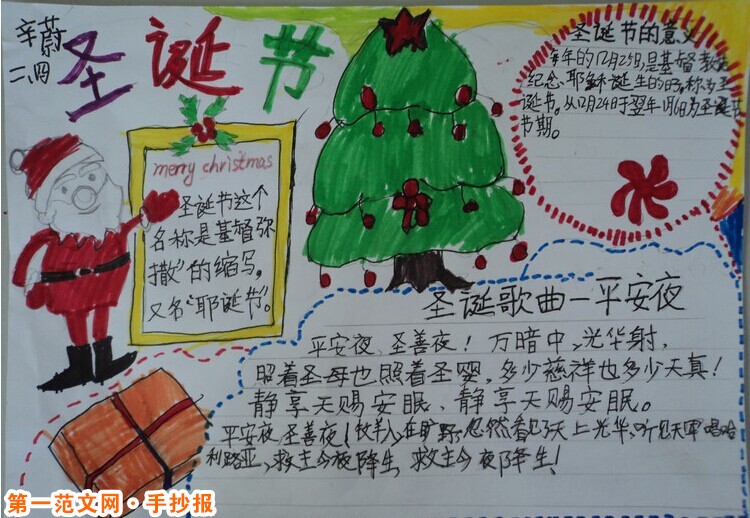 辛蔚
二、四
圣诞节
merry christmas
圣诞节这个
名称是基督弥
撒”的缩写,
又名“耶诞节”。
圣诞节的意义
每年的12月25日,是基督教徒
纪念耶稣诞生的日,称为圣
诞节。从12月24日于翌年1月6日为圣诞节
节期。
圣诞歌曲一平安夜
平安夜、圣善夜!万暗中,光华射,
照着圣母也照着圣婴,多少慈祥也多少天真!
静享天赐安眠、静享天赐安眠。
平安夜,圣善夜!牧羊人,在旷野,忽然看见了天上光华,听见天军唱哈
利路亚,救主今夜降生 救主今夜降生!
第一范文网·手抄报